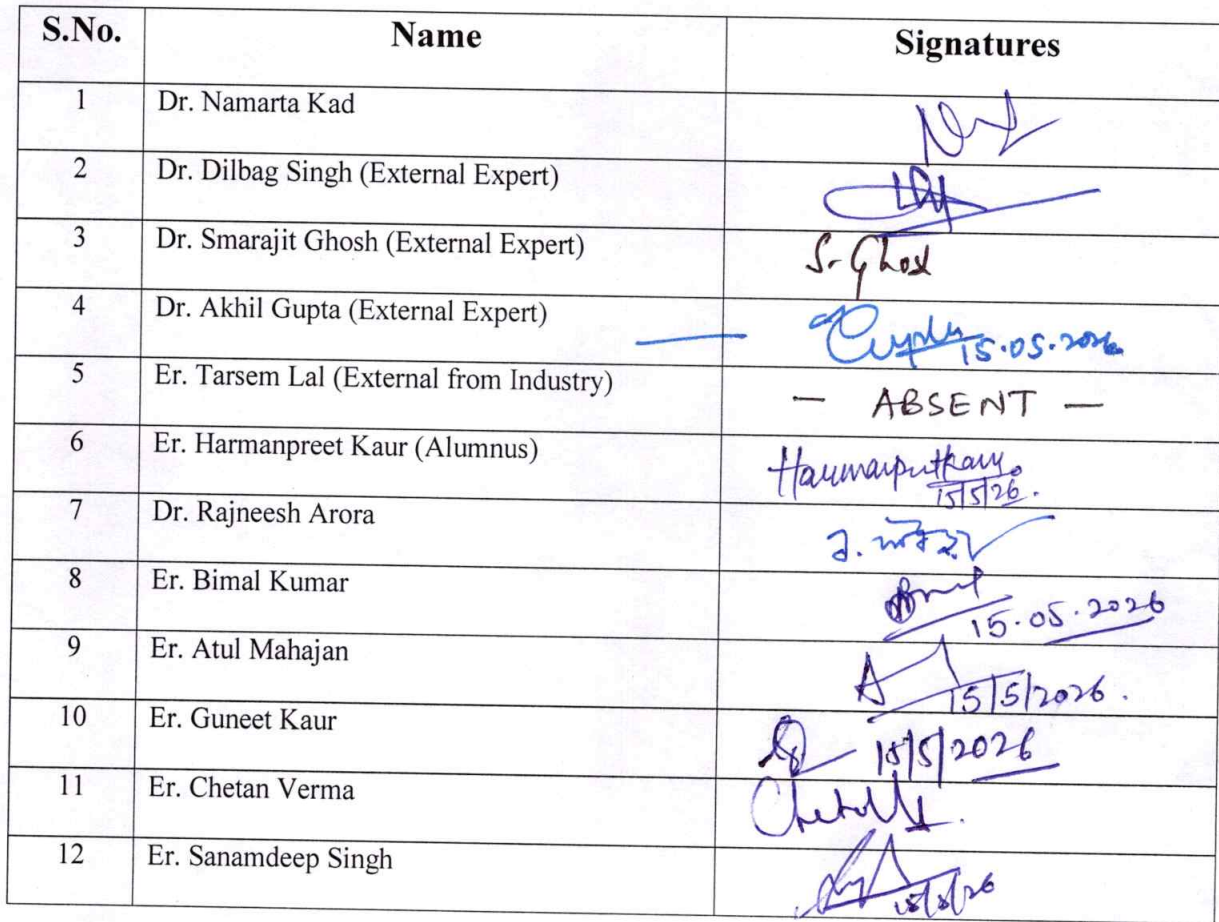 S.No. Name Signatures
1 Dr. Namarta Kad
2 Dr. Dilbag Singh (External Expert)
3 Dr. Smarajit Ghosh (External Expert) S. Ghosh
4 Dr. Akhil Gupta (External Expert) Gupta 15.05.2026
5 Er. Tarsem Lal (External from Industry) — ABSENT —
6 Er. Harmanpreet Kaur (Alumnus) Harmanpreet Kaur
15/5/26.
7 Dr. Rajneesh Arora
8 Er. Bimal Kumar 15.05.2026
9 Er. Atul Mahajan 15/5/2026.
10 Er. Guneet Kaur 15/5/2026
11 Er. Chetan Verma
12 Er. Sanamdeep Singh 15/5/26